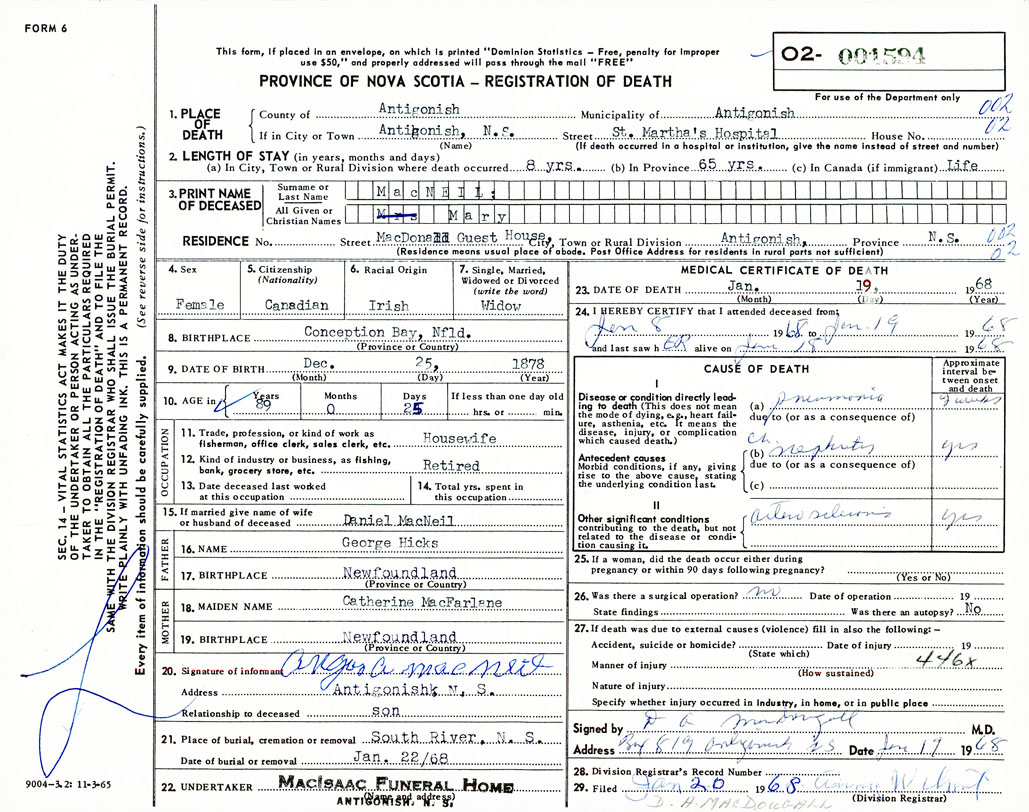 FORM 6
This form, if placed in an envelope, on which is printed "Dominion Statistics – Free, penalty for improper
use $50," and properly addressed will pass through the mail "FREE"
PROVINCE OF NOVA SCOTIA – REGISTRATION OF DEATH
O2- 001594
For use of the Department only
002
02
1. PLACE OF DEATH
County of Antigonish Municipality of Antigonish
If in City or Town Antigonish, N.S. Street St. Martha's Hospital House No.
(Name) (If death occurred in a hospital or institution, give the name instead of street and number)
2. LENGTH OF STAY (in years, months and days)
(a) In City, Town or Rural Division where death occurred 8 yrs. (b) In Province 65 yrs. (c) In Canada (if immigrant) Life
3. PRINT NAME OF DECEASED
Surname or Last Name MacNEIL:
All Given or Christian Names Mrs Mary
RESIDENCE No. Street MacDonald Guest House, City, Town or Rural Division Antigonish, Province N.S. 002
(Residence means usual place of abode. Post Office Address for residents in rural parts not sufficient) 02
4. Sex
Female
5. Citizenship
(Nationality)
Canadian
6. Racial Origin
Irish
7. Single, Married,
Widowed or Divorced
(write the word)
Widow
8. BIRTHPLACE Conception Bay, Nfld.
(Province or Country)
9. DATE OF BIRTH Dec. 25, 1878
(Month) (Day) (Year)
10. AGE in Years Months Days If less than one day old
89 0 25 hrs. or min.
OCCUPATION
11. Trade, profession, or kind of work as
fisherman, office clerk, sales clerk, etc. Housewife
12. Kind of industry or business, as fishing,
bank, grocery store, etc. Retired
13. Date deceased last worked
at this occupation
14. Total yrs. spent in
this occupation
15. If married give name of wife
or husband of deceased Daniel MacNeil
FATHER
16. NAME George Hicks
17. BIRTHPLACE Newfoundland
(Province or Country)
MOTHER
18. MAIDEN NAME Catherine MacFarlane
19. BIRTHPLACE Newfoundland
(Province or Country)
20. Signature of informant Angus A MacNeil
Address Antigonish, N. S.
Relationship to deceased son
21. Place of burial, cremation or removal South River, N. S.
Date of burial or removal Jan. 22/68
22. UNDERTAKER MACISAAC FUNERAL HOME
(Name and address)
ANTIGONISH, N. S.
MEDICAL CERTIFICATE OF DEATH
23. DATE OF DEATH Jan. 19, 1968
(Month) (Day) (Year)
24. I HEREBY CERTIFY that I attended deceased from;
Jan 8 1968 to Jan 19 1968
and last saw hER alive on Jan 18 1968
CAUSE OF DEATH
Approximate
interval be-
tween onset
and death
I
Disease or condition directly lead-
ing to death (This does not mean
the mode of dying, e.g., heart fail-
ure, asthenia, etc. It means the
disease, injury, or complication
which caused death.)
(a) pneumonia weeks
due to (or as a consequence of)
Antecedent causes
Morbid conditions, if any, giving
rise to the above cause, stating
the underlying condition last.
(b) Ch nephritis yrs
due to (or as a consequence of)
(c)
II
Other significant conditions
contributing to the death, but not
related to the disease or condi-
tion causing it.
arterosclerosis yrs
25. If a woman, did the death occur either during
pregnancy or within 90 days following pregnancy?
(Yes or No)
26. Was there a surgical operation? no Date of operation 19
State findings Was there an autopsy? No
27. If death was due to external causes (violence) fill in also the following: –
Accident, suicide or homicide? Date of injury 19
(State which)
Manner of injury 446x
(How sustained)
Nature of injury
Specify whether injury occurred in industry, in home, or in public place
Signed by D A MacDougall M.D.
Address Box 819 Antigonish N S Date Jan 19 1968
28. Division Registrar's Record Number
29. Filed Jan 20 1968
(Division Registrar)
D. A. MACDOUGALL
SEC. 14 – VITAL STATISTICS ACT MAKES IT THE DUTY
OF THE UNDERTAKER OR PERSON ACTING AS UNDER-
TAKER TO OBTAIN ALL THE PARTICULARS REQUIRED
IN THE "REGISTRATION OF DEATH" AND TO FILE THE
SAME WITH THE DIVISION REGISTRAR WHO SHALL ISSUE THE BURIAL PERMIT.
WRITE PLAINLY WITH UNFADING INK. THIS IS A PERMANENT RECORD.
Every item of information should be carefully supplied. (See reverse side for instructions.)
9004-3.2: 11-3-65